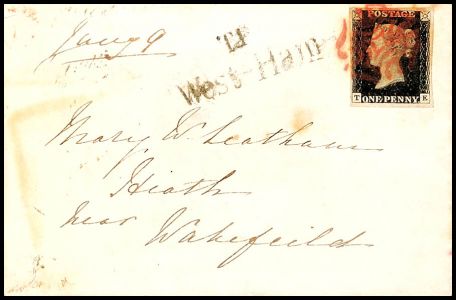 Jany 9
T.P
West-Ham
POSTAGE
T K
ONE PENNY
Mary W. Leatham
Heath
near Wakefeild